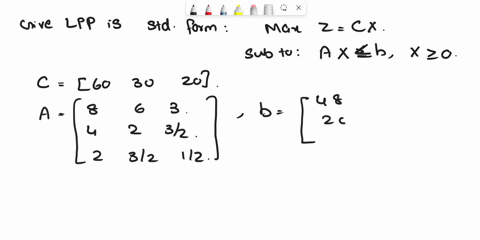 Give LPP is std. form: Max Z = CX.
sub to: A X ≤ b, X ≥ 0.
C = [60 30 20].
A = [8 6 3. , b = [48
4 2 3/2. 20
2 3/2 1/2.]